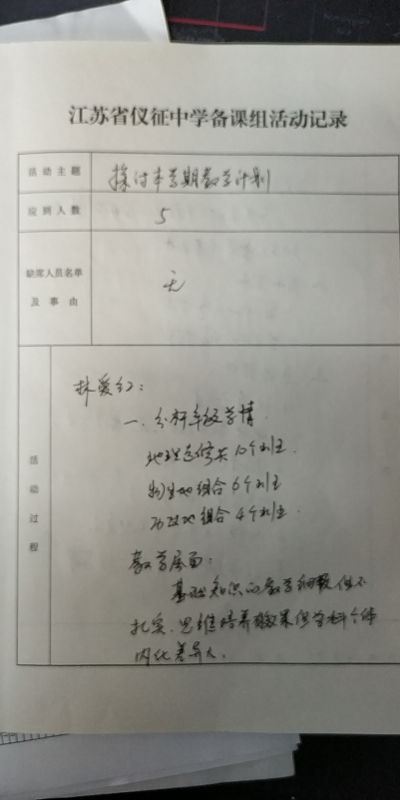 江苏省仪征中学备课组活动记录
活动主题 探讨本学期教学计划
应到人数 5
缺席人员名单及事由 无
活动过程
林爱红：
一、分析年级学情
地理选修共10个班.
物生地组合6个班
历政地组合4个班.
教学层面：
基础知识的教学细致但不
扎实.思维培养有效果但学科个体
内化差异大.